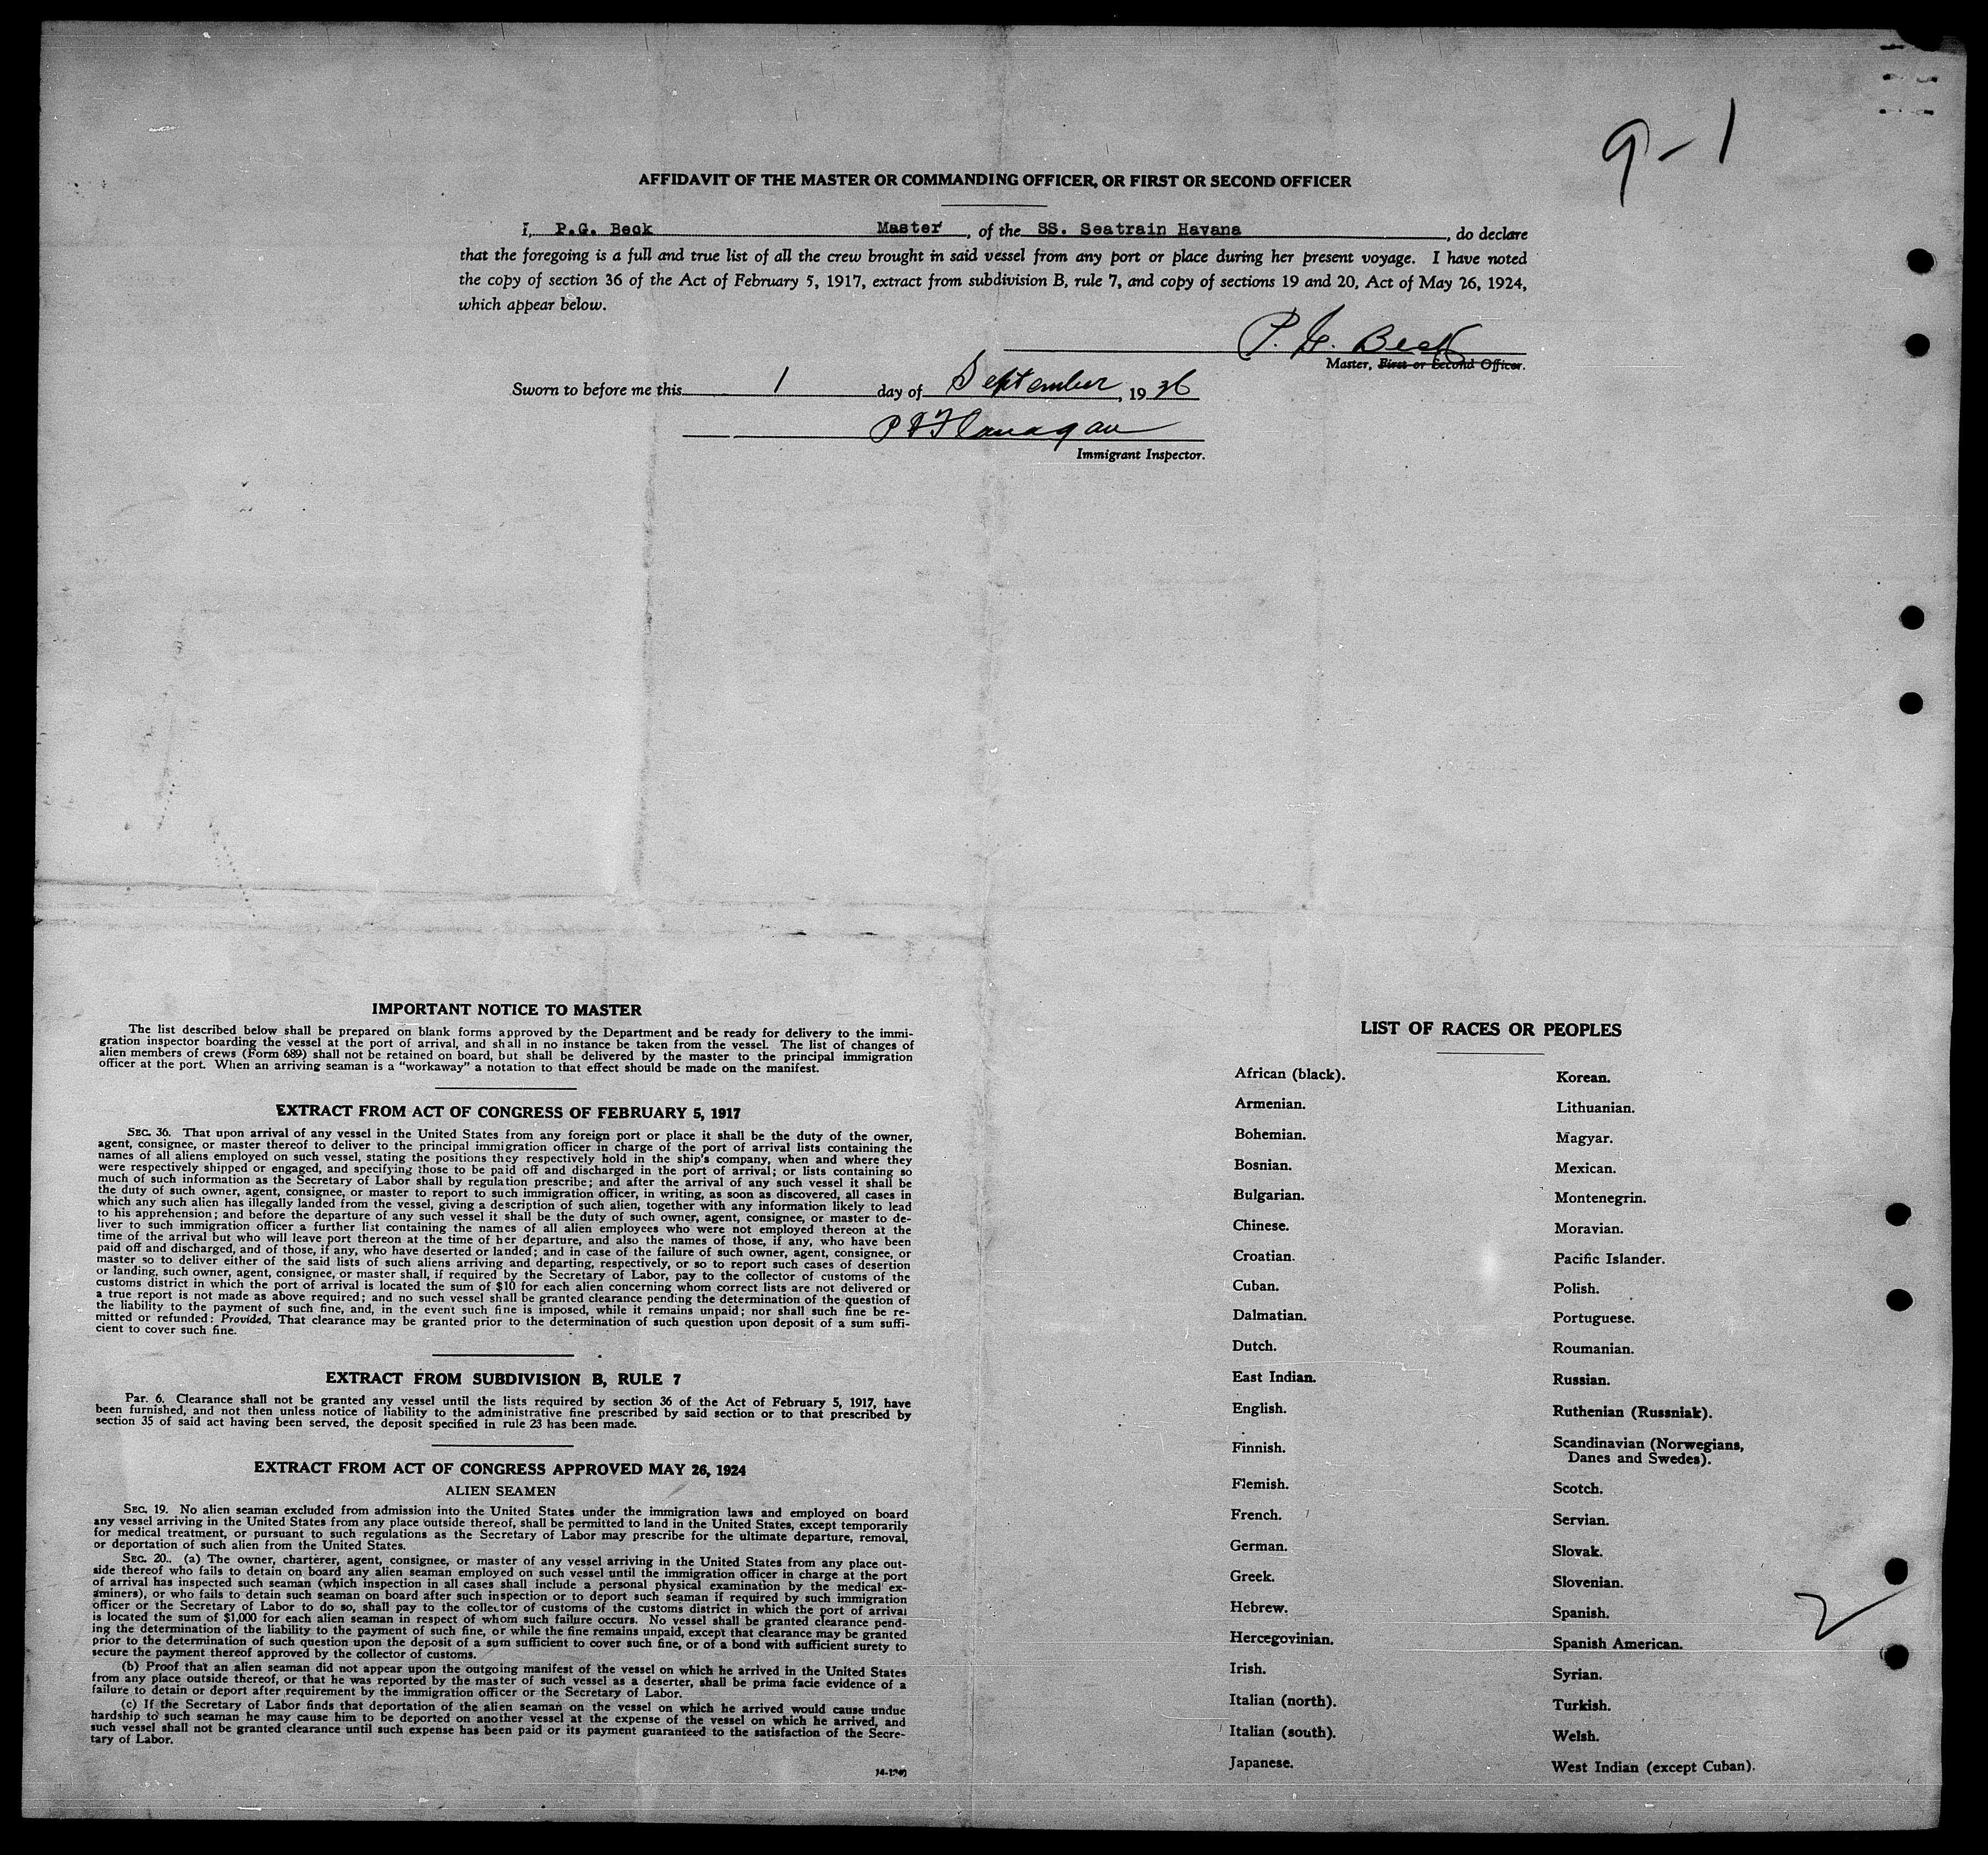 9-1
AFFIDAVIT OF THE MASTER OR COMMANDING OFFICER, OR FIRST OR SECOND OFFICER
I, P.G. Beck Master, of the SS. Seatrain Havana, do declare
that the foregoing is a full and true list of all the crew brought in said vessel from any port or place during her present voyage. I have noted
the copy of section 36 of the Act of February 5, 1917, extract from subdivision B, rule 7, and copy of sections 19 and 20, Act of May 26, 1924,
which appear below.
P. G. Beck
Master, First or Second Officer.
Sworn to before me this 1 day of September, 1936
Flanagan
Immigrant Inspector.
IMPORTANT NOTICE TO MASTER
The list described below shall be prepared on blank forms approved by the Department and be ready for delivery to the immi-
gration inspector boarding the vessel at the port of arrival, and shall in no instance be taken from the vessel. The list of changes of
alien members of crews (Form 689) shall not be retained on board, but shall be delivered by the master to the principal immigration
officer at the port. When an arriving seaman is a "workaway" a notation to that effect should be made on the manifest.
EXTRACT FROM ACT OF CONGRESS OF FEBRUARY 5, 1917
SEC. 36. That upon arrival of any vessel in the United States from any foreign port or place it shall be the duty of the owner,
agent, consignee, or master thereof to deliver to the principal immigration officer in charge of the port of arrival lists containing the
names of all aliens employed on such vessel, stating the positions they respectively hold in the ship's company, when and where they
were respectively shipped or engaged, and specifying those to be paid off and discharged in the port of arrival; or lists containing so
much of such information as the Secretary of Labor shall by regulation prescribe; and after the arrival of any such vessel it shall be
the duty of such owner, agent, consignee, or master to report to such immigration officer, in writing, as soon as discovered, all cases in
which any such alien has illegally landed from the vessel, giving a description of such alien, together with any information likely to lead
to his apprehension; and before the departure of any such vessel it shall be the duty of such owner, agent, consignee, or master to de-
liver to such immigration officer a further list containing the names of all alien employees who were not employed thereon at the
time of the arrival but who will leave port thereon at the time of her departure, and also the names of those, if any, who have been
paid off and discharged, and of those, if any, who have deserted or landed; and in case of the failure of such owner, agent, consignee, or
master so to deliver either of the said lists of such aliens arriving and departing, respectively, or so to report such cases of desertion
or landing, such owner, agent, consignee, or master shall, if required by the Secretary of Labor, pay to the collector of customs of the
customs district in which the port of arrival is located the sum of $10 for each alien concerning whom correct lists are not delivered or
a true report is not made as above required; and no such vessel shall be granted clearance pending the determination of the question of
the liability to the payment of such fine, and, in the event such fine is imposed, while it remains unpaid; nor shall such fine be re-
mitted or refunded: Provided, That clearance may be granted prior to the determination of such question upon deposit of a sum suffi-
cient to cover such fine.
EXTRACT FROM SUBDIVISION B, RULE 7
Par. 6. Clearance shall not be granted any vessel until the lists required by section 36 of the Act of February 5, 1917, have
been furnished, and not then unless notice of liability to the administrative fine prescribed by said section or to that prescribed by
section 35 of said act having been served, the deposit specified in rule 23 has been made.
EXTRACT FROM ACT OF CONGRESS APPROVED MAY 26, 1924
ALIEN SEAMEN
SEC. 19. No alien seaman excluded from admission into the United States under the immigration laws and employed on board
any vessel arriving in the United States from any place outside thereof, shall be permitted to land in the United States, except temporarily
for medical treatment, or pursuant to such regulations as the Secretary of Labor may prescribe for the ultimate departure, removal,
or deportation of such alien from the United States.
SEC. 20. (a) The owner, charterer, agent, consignee, or master of any vessel arriving in the United States from any place out-
side thereof who fails to detain on board any alien seaman employed on such vessel until the immigration officer in charge at the port
of arrival has inspected such seaman (which inspection in all cases shall include a personal physical examination by the medical ex-
aminers), or who fails to detain such seaman on board after such inspection or to deport such seaman if required by such immigration
officer or the Secretary of Labor to do so, shall pay to the collector of customs of the customs district in which the port of arrival
is located the sum of $1,000 for each alien seaman in respect of whom such failure occurs. No vessel shall be granted clearance pend-
ing the determination of the liability to the payment of such fine, or while the fine remains unpaid, except that clearance may be granted
prior to the determination of such question upon the deposit of a sum sufficient to cover such fine, or of a bond with sufficient surety to
secure the payment thereof approved by the collector of customs.
(b) Proof that an alien seaman did not appear upon the outgoing manifest of the vessel on which he arrived in the United States
from any place outside thereof, or that he was reported by the master of such vessel as a deserter, shall be prima facie evidence of a
failure to detain or deport after requirement by the immigration officer or the Secretary of Labor.
(c) If the Secretary of Labor finds that deportation of the alien seaman on the vessel on which he arrived would cause undue
hardship to such seaman he may cause him to be deported on another vessel at the expense of the vessel on which he arrived, and
such vessel shall not be granted clearance until such expense has been paid or its payment guaranteed to the satisfaction of the Secre-
tary of Labor.
LIST OF RACES OR PEOPLES
African (black).
Armenian.
Bohemian.
Bosnian.
Bulgarian.
Chinese.
Croatian.
Cuban.
Dalmatian.
Dutch.
East Indian.
English.
Finnish.
Flemish.
French.
German.
Greek.
Hebrew.
Hercegovinian.
Irish.
Italian (north).
Italian (south).
Japanese.
Korean.
Lithuanian.
Magyar.
Mexican.
Montenegrin.
Moravian.
Pacific Islander.
Polish.
Portuguese.
Roumanian.
Russian.
Ruthenian (Russniak).
Scandinavian (Norwegians,
Danes and Swedes).
Scotch.
Servian.
Slovak.
Slovenian.
Spanish.
Spanish American.
Syrian.
Turkish.
Welsh.
West Indian (except Cuban).
2